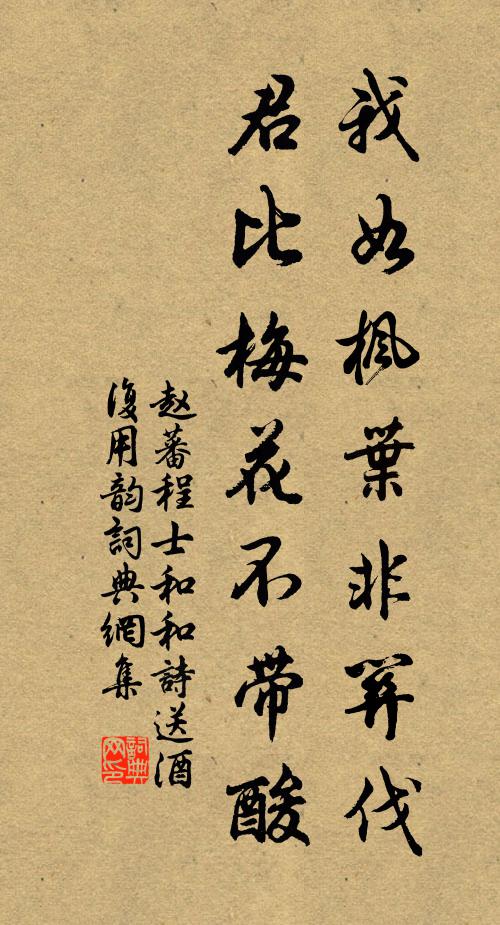 我如楓葉非伐
君比梅花不帶酸
赵蕃程士和和詩送酒
復用韵詞典網集
詞典
网印